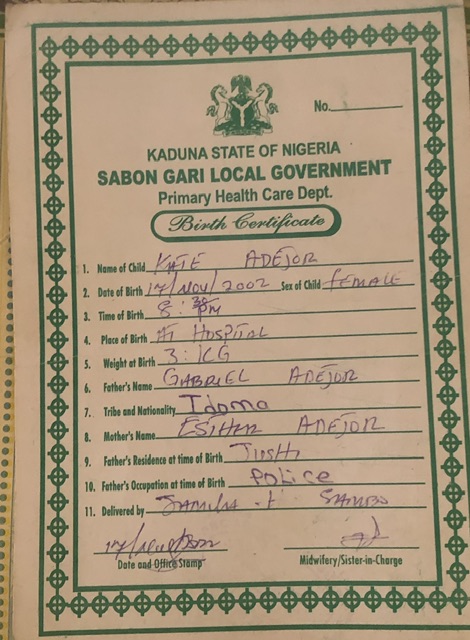 No.
KADUNA STATE OF NIGERIA
SABON GARI LOCAL GOVERNMENT
Primary Health Care Dept.
Birth Certificate
1. Name of Child KATE ADEJOR
2. Date of Birth 17/NOV/2002 Sex of Child FEMALE
3. Time of Birth 8:30PM
4. Place of Birth At HOSPITAL
5. Weight at Birth 3:KG
6. Father's Name GABRIEL ADEJOR
7. Tribe and Nationality Idoma
8. Mother's Name ESTHER ADEJOR
9. Father's Residence at time of Birth
10. Father's Occupation at time of Birth POLICE
11. Delivered by SAMBO
Date and Office Stamp
Midwifery/Sister-in-Charge